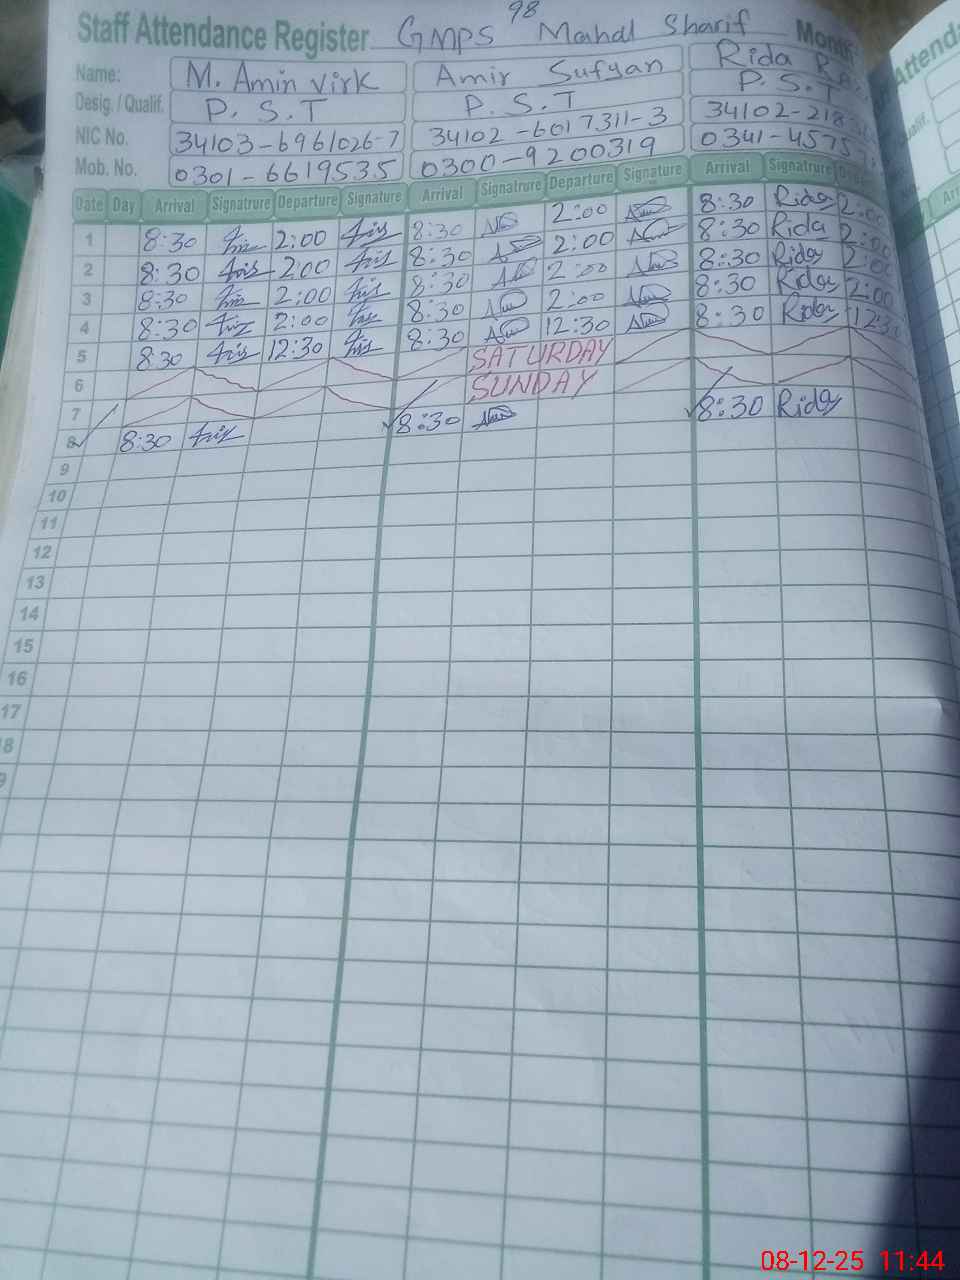 98
Staff Attendance Register GMPS Mahal Sharif Month
Name: M. Amin Virk Amir Sufyan Rida
Desig. / Qualif. P. S. T P. S. T P. S. T
NIC No. 34103-6961026-7 34102-6017311-3 34102-218
Mob. No. 0301-6619535 0300-9200319 0341-4575
Date Day Arrival Signatrure Departure Signature Arrival Signatrure Departure Signature Arrival Signatrure
1 8:30 2:00 8:30 2:00 8:30 Rida 2:00
2 8:30 2:00 8:30 2:00 8:30 Rida 2:00
3 8:30 2:00 8:30 2:00 8:30 Rida 2:00
4 8:30 2:00 8:30 2:00 8:30 Rida 2:00
5 8:30 12:30 8:30 12:30 8:30 Rida 12:30
6 SATURDAY
7 SUNDAY
8 8:30 8:30 8:30 Rida
9
10
11
12
13
14
15
16
17
8
9
Attenda
ualif.
08-12-25 11:44